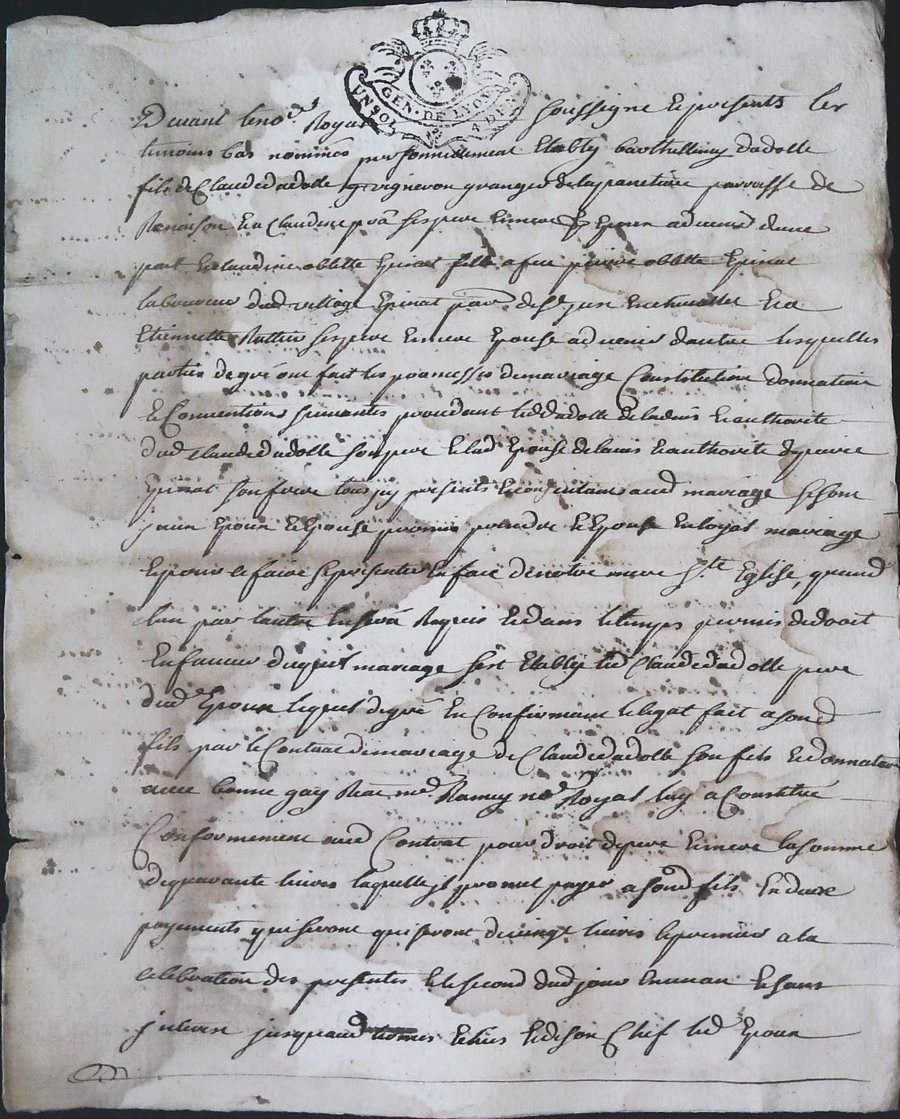 GEN. DE LYON
UN SOL 4 DEN.
Devant le no.re Royal soussigne et presents les
temoins bas nommés personnellement Etably barthellemy dadolle
fils de Claude dadolle vigneron granger de la panetiere parroisse de
Renaison et a Claudine ses pere et mere Epoux advenir d'une
part et claudine oblette Epinat fille a feu pierre oblette Epinat
laboureur dud village Epinat par. de St
Etiennette ses pere et mere Epouse advenir d'autre lesquelles
parties de gré ont fait les promesses de mariage Constitution donnation
et Conventions suivantes procedant led dadolle de ladvis et authorité
dud Claude dadolle son pere et lad Epouse de lavis et authorité de pierre
Epinat son frere tous icy presents et consentans aud mariage se sont
iceux Epoux et Epouse promis prendre et Epouser en loyal mariage
et pour ce faire se presenter en face de notre mere Ste Eglise, quand
l'un par l'autre en sera Requis et dans le temps permis de droit
En faveur duquel mariage s'est Etably led Claude dadolle pere
dud Epoux lequel de gré En Confirmant le legat fait a son d
fils par le Contrat de mariage de Claude dadolle son fils et donnataire
avec benne gay Recu me Ramey no.re Royal luy a Constitué
Conformement aud Contrat pour droit de pere et mere la somme
de quarante livres laquelle il promet payer a sond fils En deux
payements qui seront de vingt livres le premier a la
celebration des presentes et le second dud jour en un an
jusqu'aud Chef led Epoux